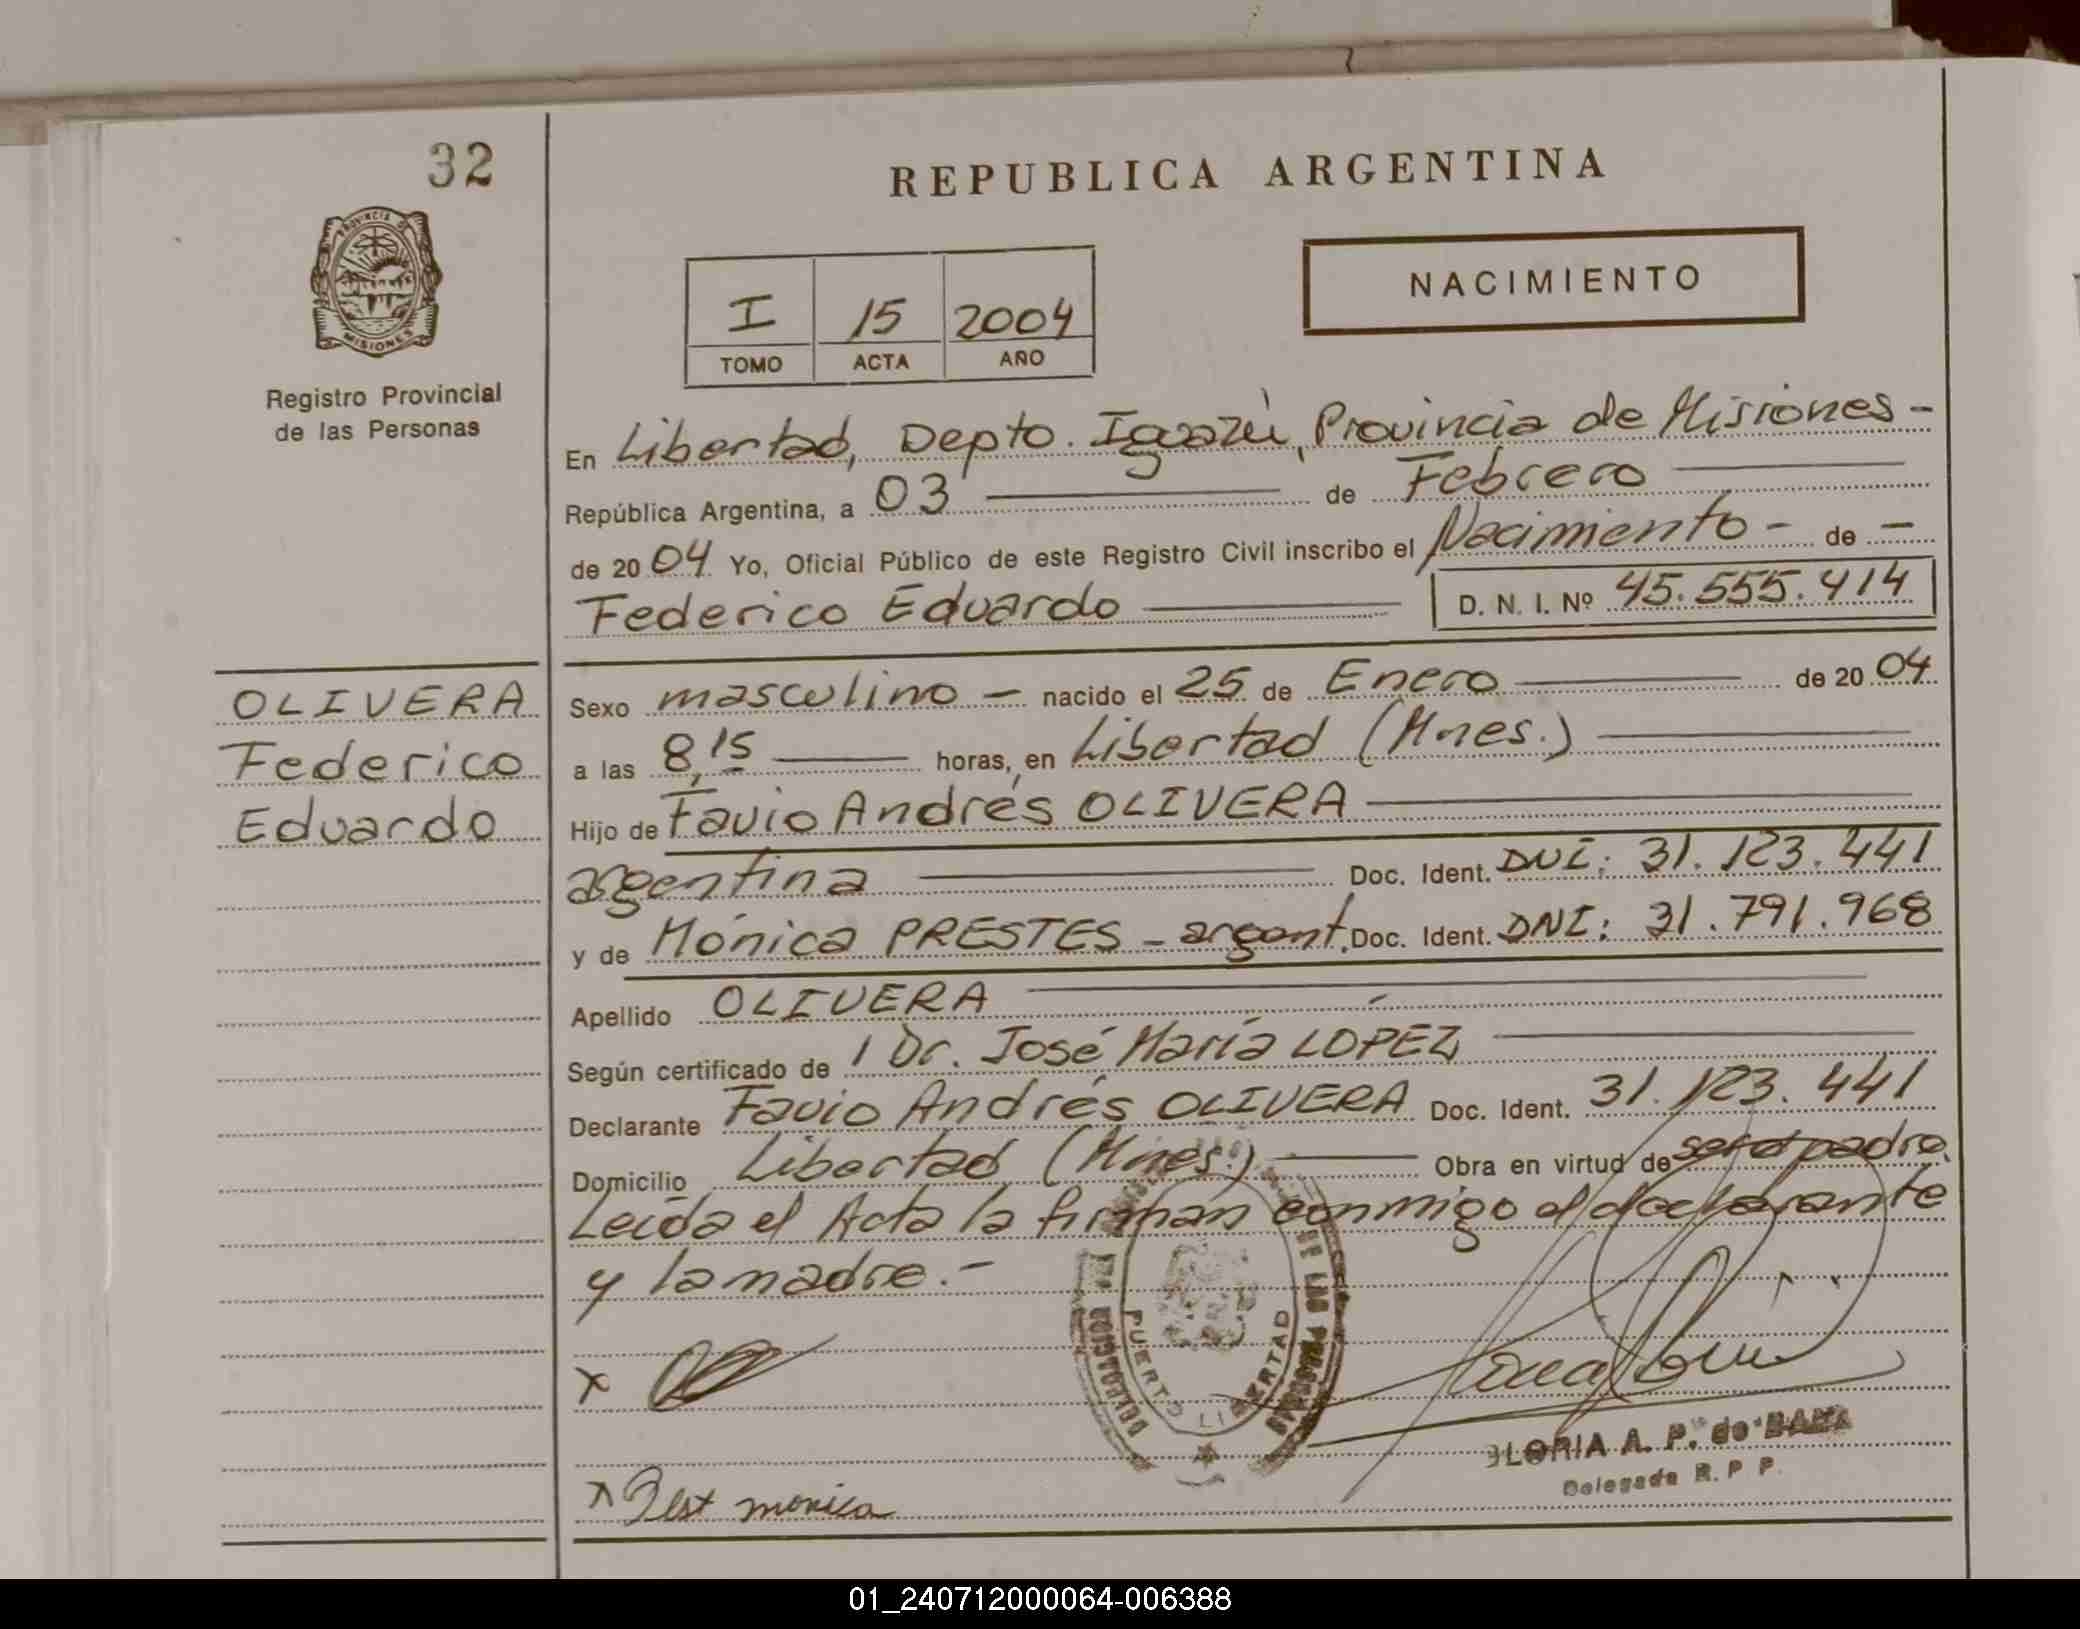 32
REPUBLICA ARGENTINA
PROVINCIA DE
MISIONES
NACIMIENTO
I 15 2004
TOMO ACTA AÑO
Registro Provincial
de las Personas
En Libertad, Depto. Iguazú, Provincia de Misiones -
República Argentina, a 03 de Febrero
de 2004 Yo, Oficial Público de este Registro Civil inscribo el Nacimiento - de -
Federico Eduardo D. N. I. Nº 45.555.414
OLIVERA
Federico
Eduardo
Sexo masculino - nacido el 25 de Enero de 2004
a las 8,15 horas, en Libertad (Mnes.)
Hijo de Favio Andrés OLIVERA
argentina Doc. Ident. DNI: 31.123.441
y de Mónica PRESTES - argent. Doc. Ident. DNI: 31.791.968
Apellido OLIVERA
Según certificado de 1 Dr. José María LOPEZ
Declarante Favio Andrés OLIVERA Doc. Ident. 31.123.441
Domicilio Libertad (Mnes.) Obra en virtud de ser el padre.
Leída el Acta la firman conmigo el declarante
y la madre.-
DELEGACION DE LAS PERSONAS
PUERTO LIBERTAD
x
x Prest monica
GLORIA A. P. de
Delegada R. P. P.
01_240712000064-006388